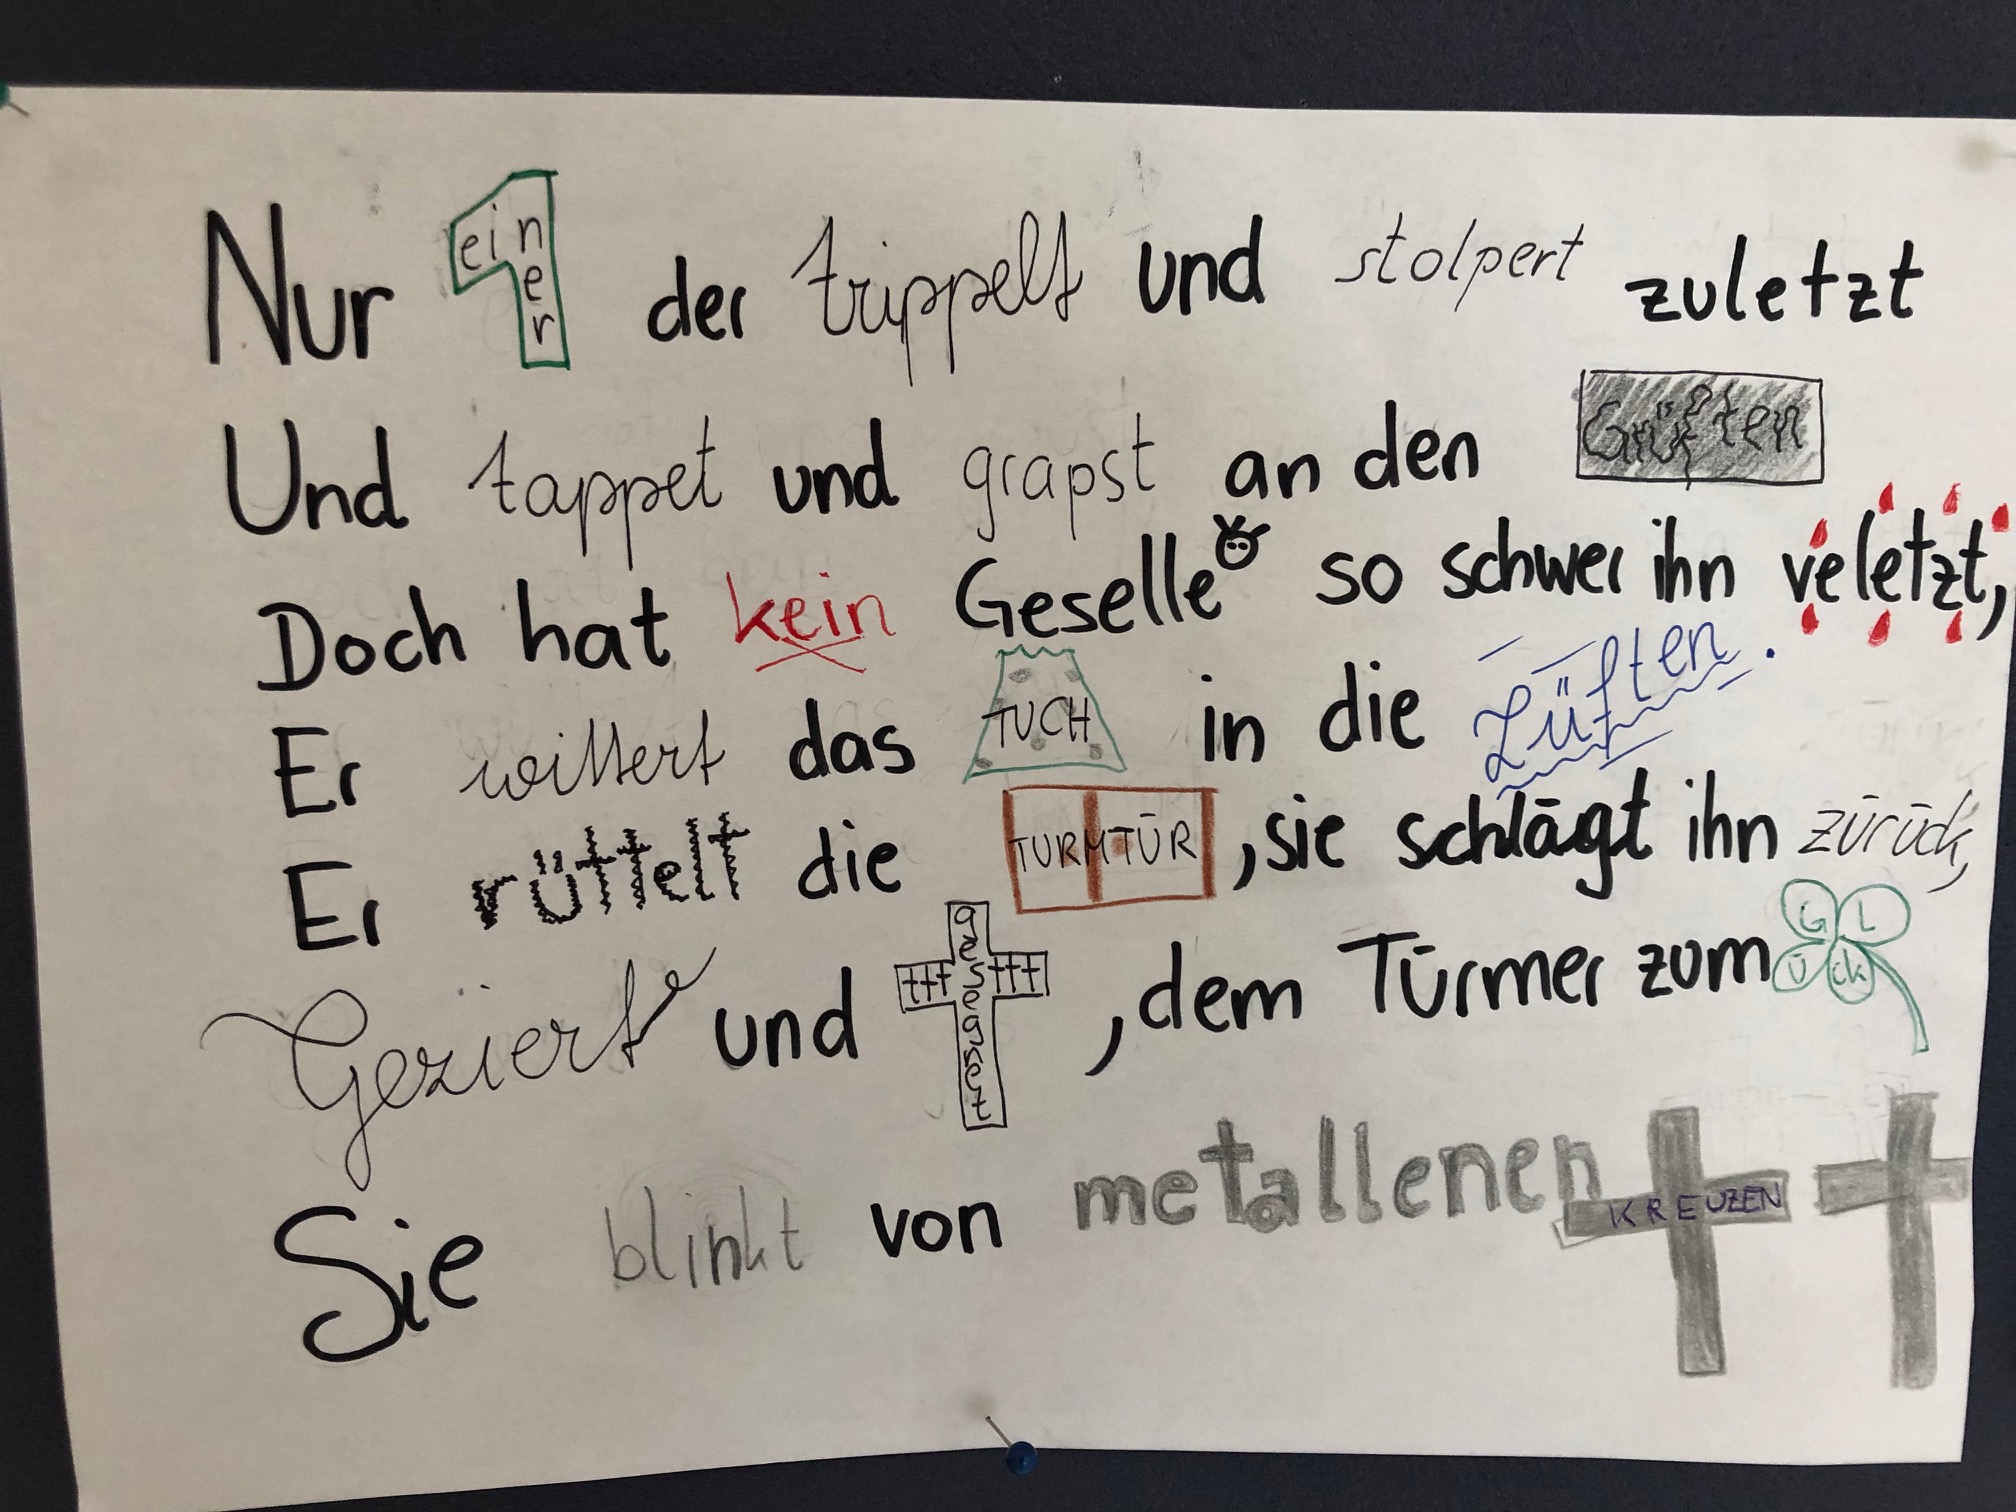 Nur einer der trippelt und stolpert zuletzt
Und tappet und grapst an den Grüften
Doch hat kein Geselle so schwer ihn veletzt,
Er wittert das TUCH in die Lüften.
Er rüttelt die TURMTÜR, sie schlägt ihn zürück,
Geziert und gesegnet, dem Türmer zum GLÜck
Sie blinkt von metallenen KREUZEN